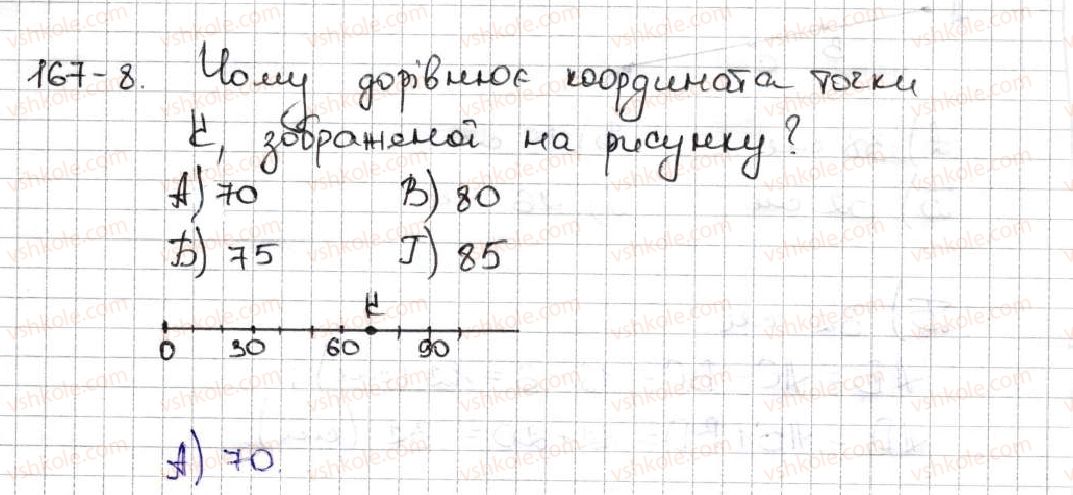 167-8. Чому дорівнює координата точки
К, зображеної на рисунку?
А) 70 В) 80
Б) 75 Г) 85
К
0 30 60 90
А) 70.